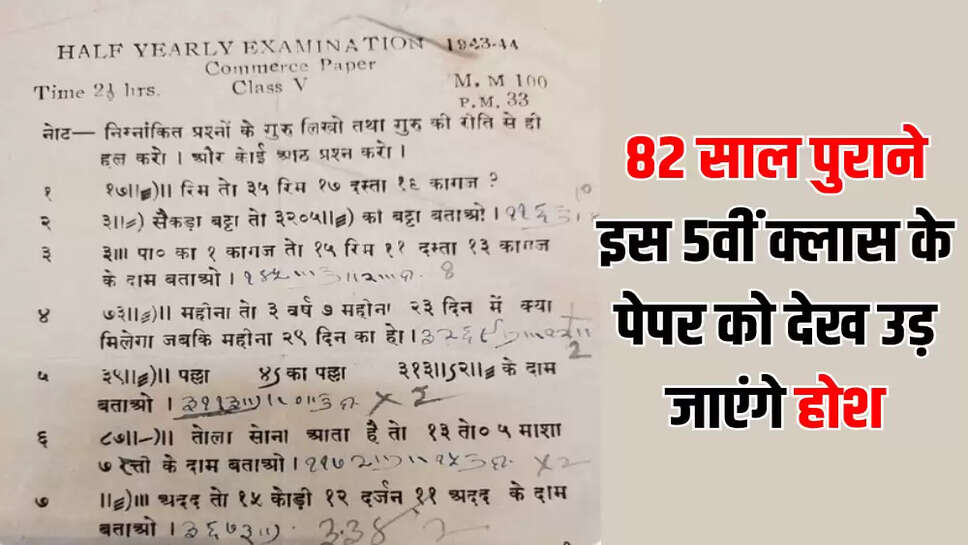 HALF YEARLY EXAMINATION 1943-44
Commerce Paper
Time 2½ hrs. Class V M. M 100
P.M. 33
नोट— निम्नांकित प्रश्नों के गुरु लिखो तथा गुरु की रीति से ही
हल करो । और कोई आठ प्रश्न करो ।
१ १७॥≡)॥ रिम तो ३५ रिम १७ दस्ता १६ कागज ?
२ ३॥=) सैकड़ा बट्टा तो ३२०५॥≡) का बट्टा बताओ ।
३ ३॥। पा० का १ कागज तो १५ रिम ११ दस्ता १३ कागज
के दाम बताओ ।
४ ७३॥≡)॥ महीना तो ३ वर्ष ७ महीना २३ दिन में क्या
मिलेगा जबकि महीना २९ दिन का हो ।
५ ३९॥≡)॥ पल्ला ४ऽ का पल्ला ३१३॥ऽ२॥≡ के दाम
बताओ । × 2
६ ८७॥-)॥ तोला सोना आता है तो १३ तो० ५ माशा
७ रत्ती के दाम बताओ । ×2
७ ॥≡)॥। अदद तो १५ कोड़ी १२ दर्जन ११ अदद के दाम
बताओ ।
82 साल पुराने
इस 5वीं क्लास के
पेपर को देख उड़
जाएंगे होश